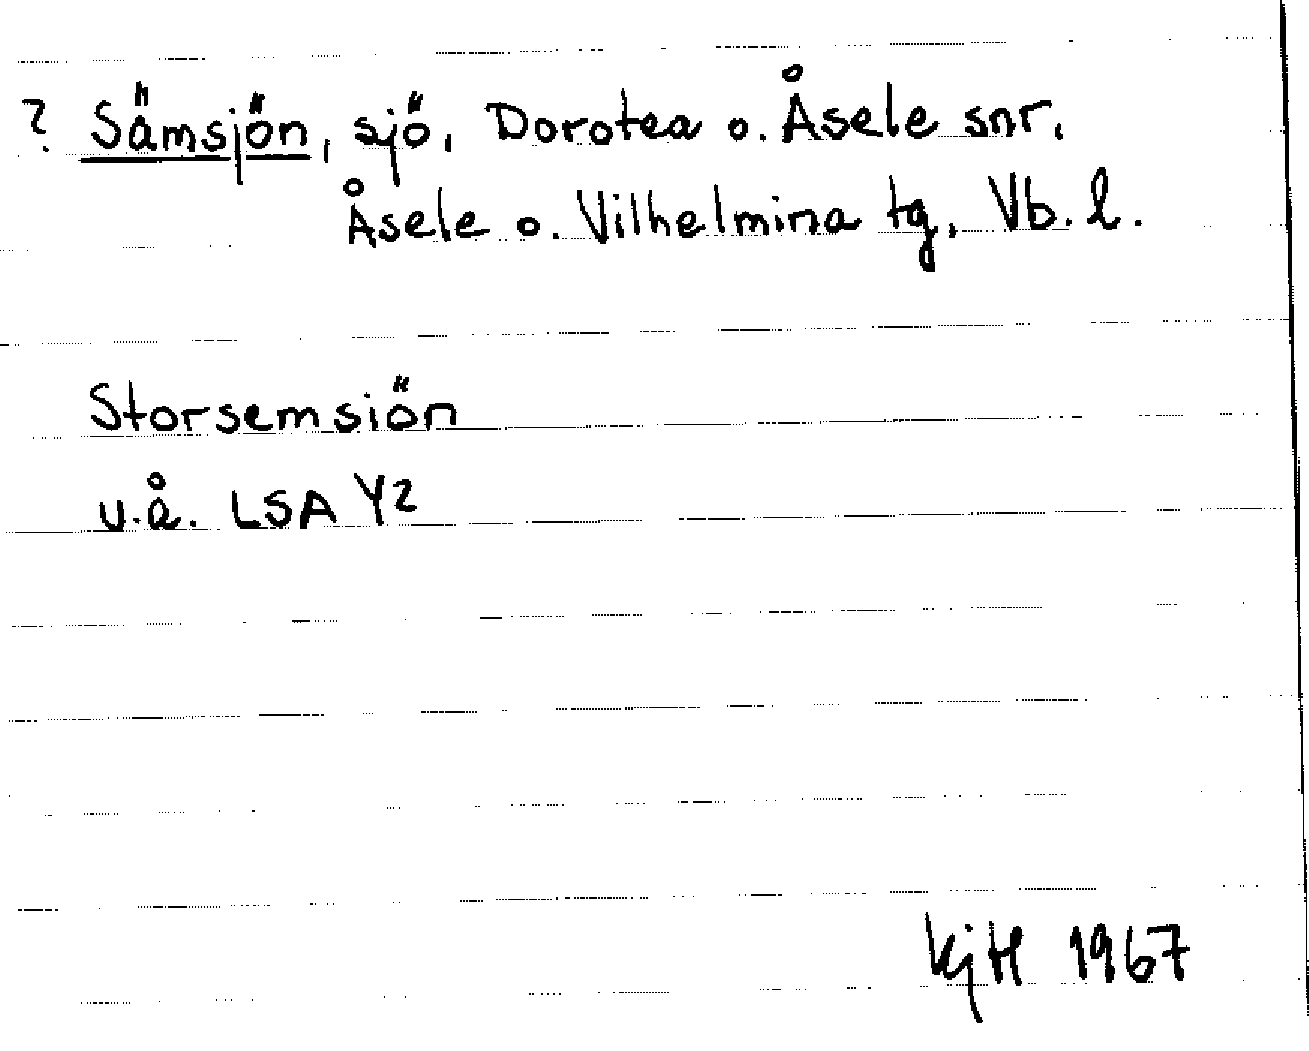 ? Sämsjön, sjö, Dorotea o. Åsele snr.
Åsele o. Vilhelmina tg, Vb. l.
Storsemsiön
u.å. LSA Y2
KjH 1967